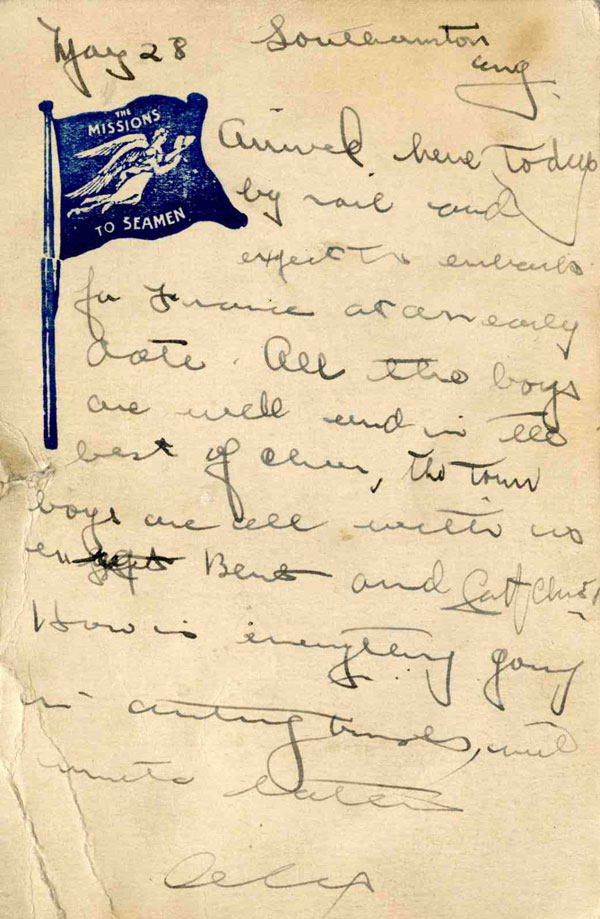 May 28 Southampton
Eng.
THE
MISSIONS
TO SEAMEN
Arrived here Today
by rail and
expect to embark
for France at an early
date. All the boys
are well and in the
best of cheer, the town
boys are all with us
except Bent and
How is everything going
in will
write later
Alex